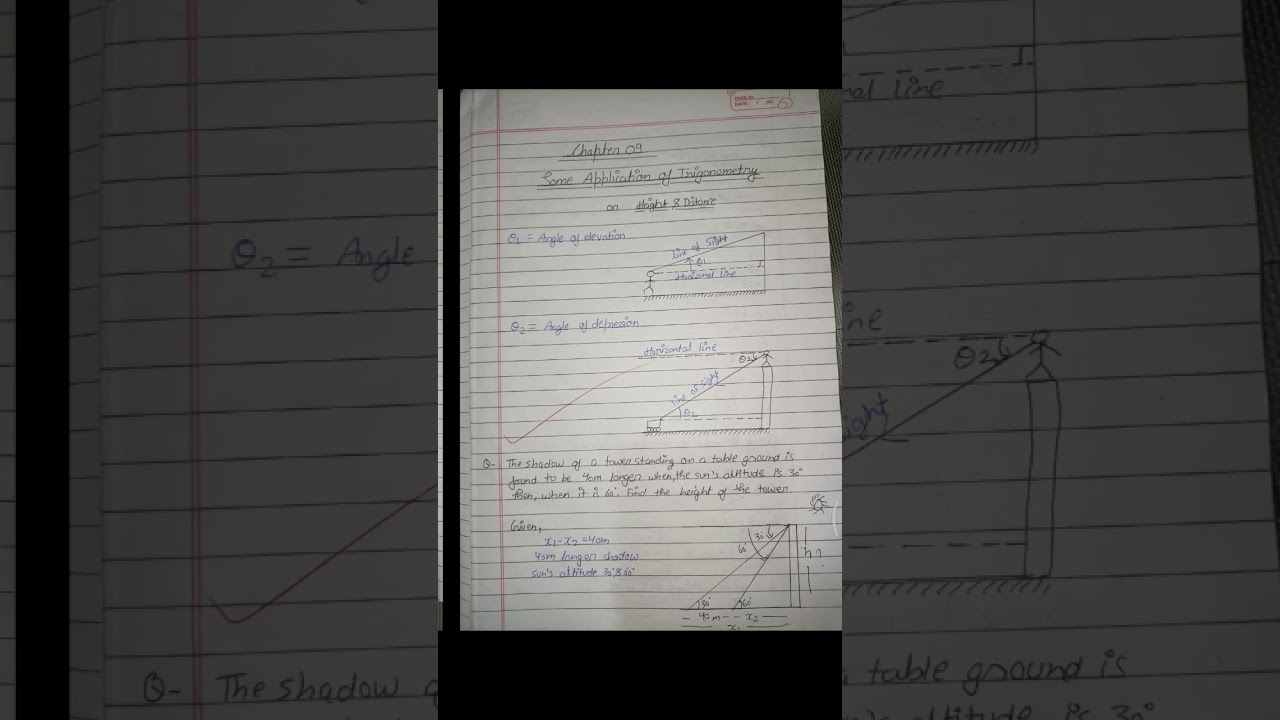 Chapter 09
Some Application of Trigonometry
on Height & Distance
θ1 = Angle of elevation
Line of Sight
θ1
Horizontal line
θ2 = Angle of depression
Horizontal line
θ2
line of sight
θ2
Q- The shadow of a tower standing on a table ground is
found to be 40m longer when, the sun's altitude is 30°
then, when it is 60°. Find the height of the tower
Given,
x1-x2 = 40m
40m longer shadow
sun's altitude 30° & 60°
30°
60°
h?
30°
60°
40m
x2
x1